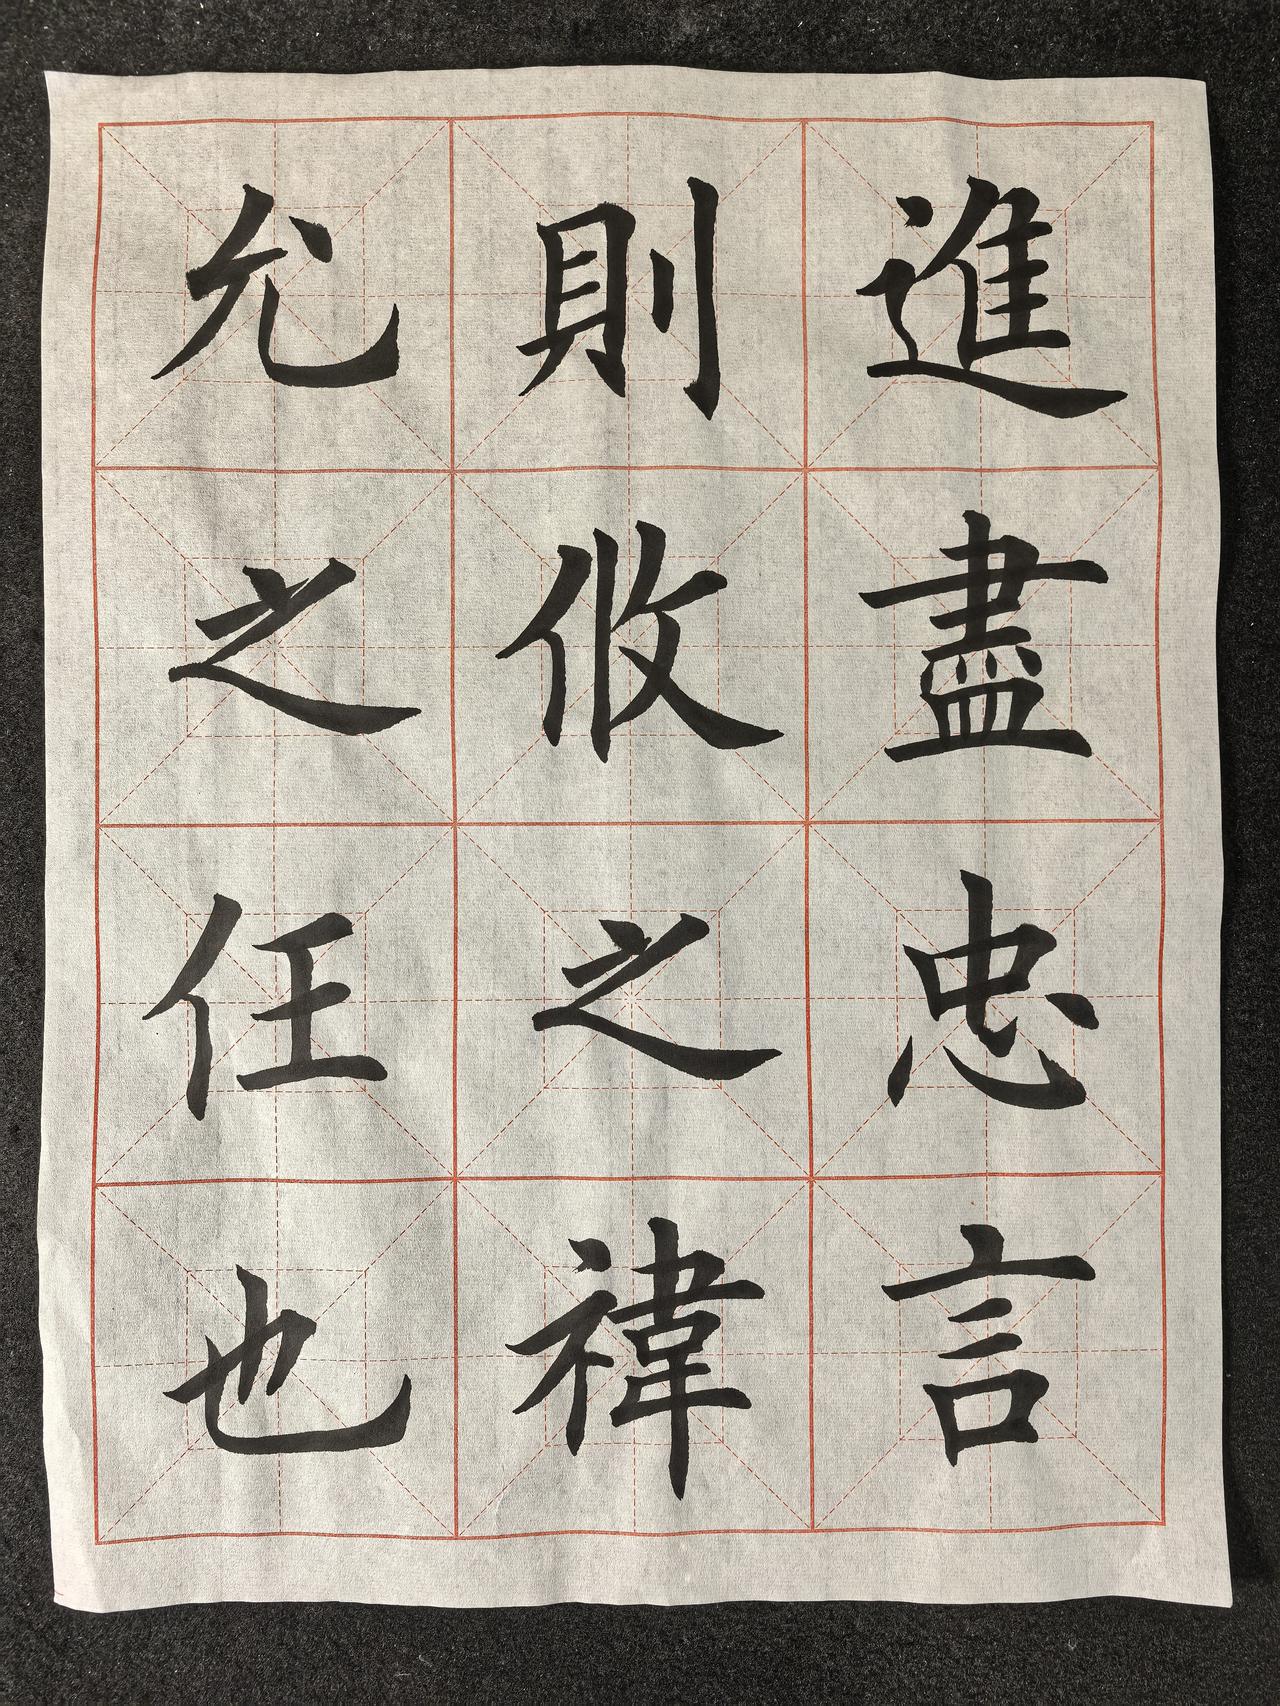 進盡忠言
則攸之禕
允之任也